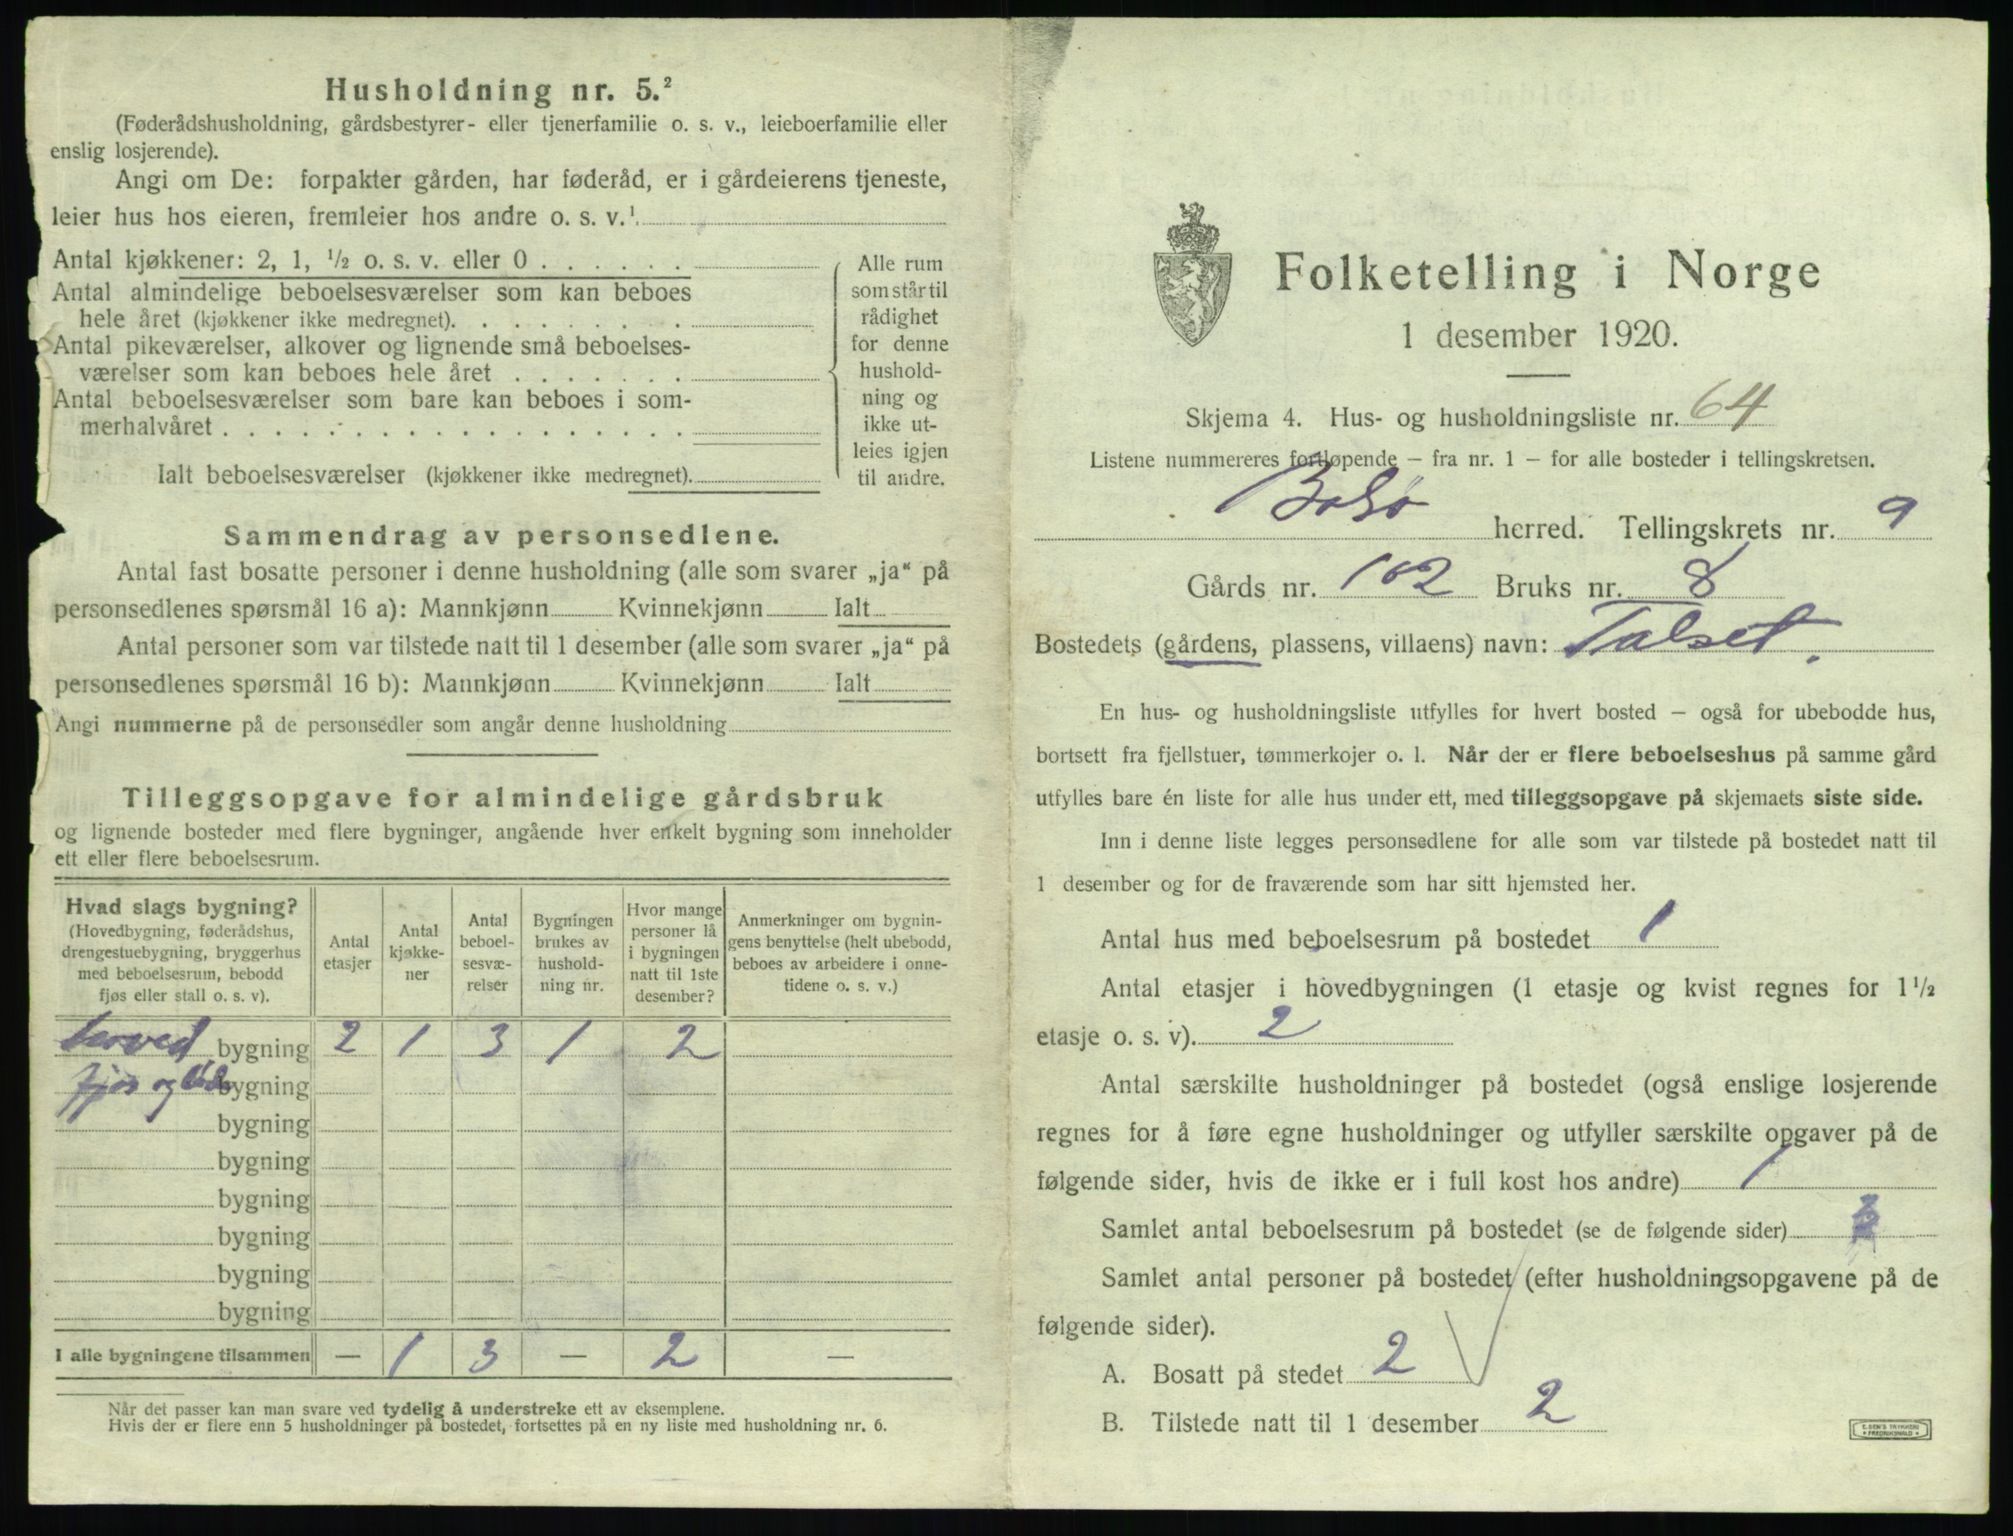 Husholdning nr. 5.²
(Føderådshusholdning, gårdsbestyrer- eller tjenerfamilie o. s. v., leieboerfamilie eller
enslig losjerende).
Angi om De: forpakter gården, har føderåd, er i gårdeierens tjeneste,
leier hus hos eieren, fremleier hos andre o. s. v.¹
Antal kjøkkener: 2, 1, ½ o. s. v. eller 0
Antal almindelige beboelsesværelser som kan beboes
hele året (kjøkkener ikke medregnet).
Antal pikeværelser, alkover og lignende små beboelses-
værelser som kan beboes hele året
Antal beboelsesværelser som bare kan beboes i som-
merhalvåret
Ialt beboelsesværelser (kjøkkener ikke medregnet).
Alle rum
som står til
rådighet
for denne
hushold-
ning og
ikke ut-
leies igjen
til andre.
Sammendrag av personsedlene.
Antal fast bosatte personer i denne husholdning (alle som svarer „ja“ på
personsedlenes spørsmål 16 a): Mannkjønn Kvinnekjønn Ialt
Antal personer som var tilstede natt til 1 desember (alle som svarer „ja“ på
personsedlenes spørsmål 16 b): Mannkjønn Kvinnekjønn Ialt
Angi nummerne på de personsedler som angår denne husholdning
Tilleggsopgave for almindelige gårdsbruk
og lignende bosteder med flere bygninger, angående hver enkelt bygning som inneholder
ett eller flere beboelsesrum.
Hvad slags bygning?
(Hovedbygning, føderådshus,
drengestuebygning, bryggerhus
med beboelsesrum, bebodd
fjøs eller stall o. s. v).
Antal
etasjer
Antal
kjøkke-
ner
Antal
beboel-
sesvæ-
relser
Bygningen
brukes av
hushold-
ning nr.
Hvor mange
personer lå
i bygningen
natt til 1ste
desember?
Anmerkninger om bygnin-
gens benyttelse (helt ubebodd,
beboes av arbeidere i onne-
tidene o. s. v.)
bygning 2 1 3 1 2
fjøs og bygning
bygning
bygning
bygning
bygning
bygning
bygning
I alle bygningene tilsammen — 1 3 — 2 —
Når det passer kan man svare ved tydelig å understreke ett av eksemplene.
Hvis der er flere enn 5 husholdninger på bostedet, fortsettes på en ny liste med husholdning nr. 6.
Folketelling i Norge
1 desember 1920.
Skjema 4. Hus- og husholdningsliste nr. 64
Listene nummereres fortløpende – fra nr. 1 – for alle bosteder i tellingskretsen.
Bolsø herred. Tellingskrets nr. 9
Gårds nr. 102 Bruks nr. 8
Bostedets (gårdens, plassens, villaens) navn: Talset.
En hus- og husholdningsliste utfylles for hvert bosted – også for ubebodde hus,
bortsett fra fjellstuer, tømmerkojer o. l. Når der er flere beboelseshus på samme gård
utfylles bare én liste for alle hus under ett, med tilleggsopgave på skjemaets siste side.
Inn i denne liste legges personsedlene for alle som var tilstede på bostedet natt til
1 desember og for de fraværende som har sitt hjemsted her.
Antal hus med beboelsesrum på bostedet 1
Antal etasjer i hovedbygningen (1 etasje og kvist regnes for 1½
etasje o. s. v). 2
Antal særskilte husholdninger på bostedet (også enslige losjerende
regnes for å føre egne husholdninger og utfyller særskilte opgaver på de
følgende sider, hvis de ikke er i full kost hos andre) 1
Samlet antal beboelsesrum på bostedet (se de følgende sider)
Samlet antal personer på bostedet (efter husholdningsopgavene på de
følgende sider).
A. Bosatt på stedet 2
B. Tilstede natt til 1 desember 2